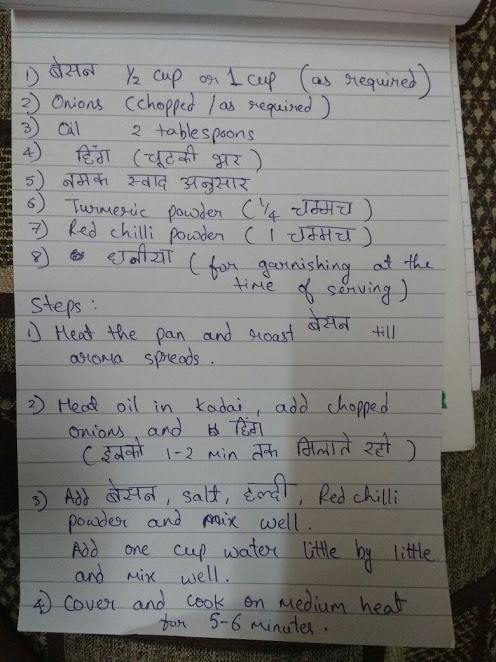 1) बेसन 1/2 cup or 1 cup (as required)
2) Onions (chopped / as required)
3) Oil 2 tablespoons
4) हिंग (चूटकी भर)
5) नमक स्वाद अनुसार
6) Turmeric powder (1/4 चम्मच)
7) Red chilli powder (1 चम्मच)
8) धनीया (for garnishing at the
time of serving)
Steps :
1) Heat the pan and roast बेसन till
aroma spreads.
2) Heat oil in kadai, add chopped
onions and हिंग
(इनको 1-2 min तक मिलाते रहो)
3) Add बेसन, salt, हल्दी, Red chilli
powder and mix well.
Add one cup water little by little
and mix well.
4) Cover and cook on medium heat
for 5-6 minutes.